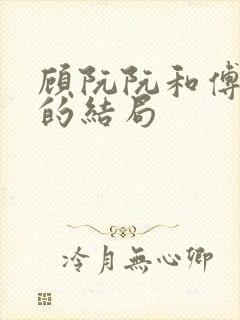 顾阮阮和傅
的结局
冷月無心卿